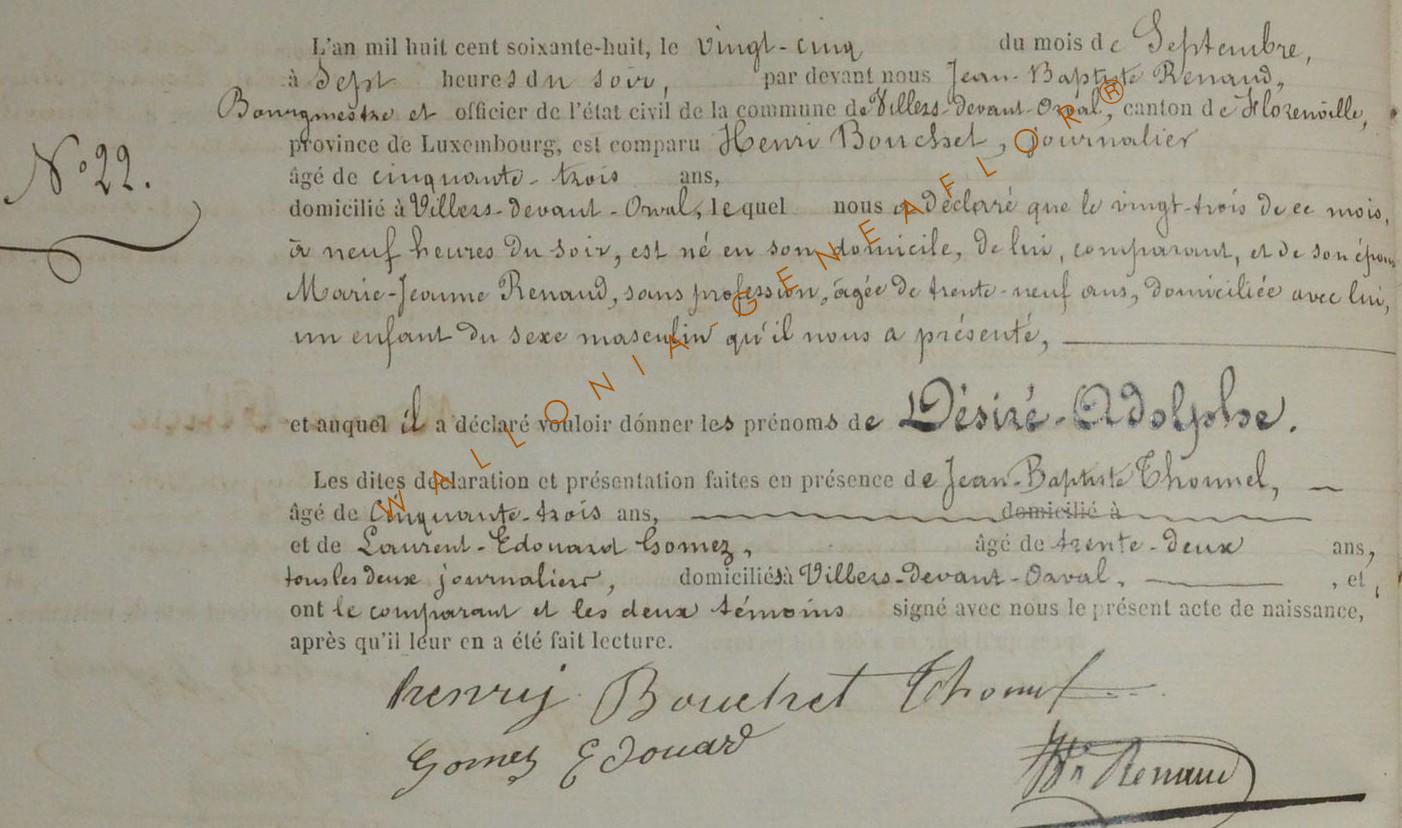 L'an mil huit cent soixante-huit, le vingt-cinq du mois de Septembre,
à Sept heures du soir, par devant nous Jean-Baptiste Renaud,
Bourgmestre et officier de l'état civil de la commune de Villers-devant-Orval, canton de Florenville,
province de Luxembourg, est comparu Henri Bouchet, journalier
N° 22.
âgé de cinquante-trois ans,
domicilié à Villers-devant-Orval, lequel nous a déclaré que le vingt-trois de ce mois,
à neuf heures du soir, est né en son domicile, de lui, comparant, et de son épouse
Marie-Jeanne Renaud, sans profession, âgée de trente-neuf ans, domiciliée avec lui,
un enfant du sexe masculin qu'il nous a présenté,
et auquel il a déclaré vouloir donner les prénoms de Désiré-Adolphe.
Les dites déclaration et présentation faites en présence de Jean-Baptiste Thonnel,
âgé de Cinquante-trois ans, domicilié à
et de Laurent-Edouard Gomez, âgé de trente-deux ans,
tous les deux journaliers, domiciliés à Villers-devant-Orval, , et
ont le comparant et les deux témoins signé avec nous le présent acte de naissance,
après qu'il leur en a été fait lecture.
henrij Bouchet Thonnel
Gomez Edouard
Renaud
WALLONIA-GENEAFLOR®